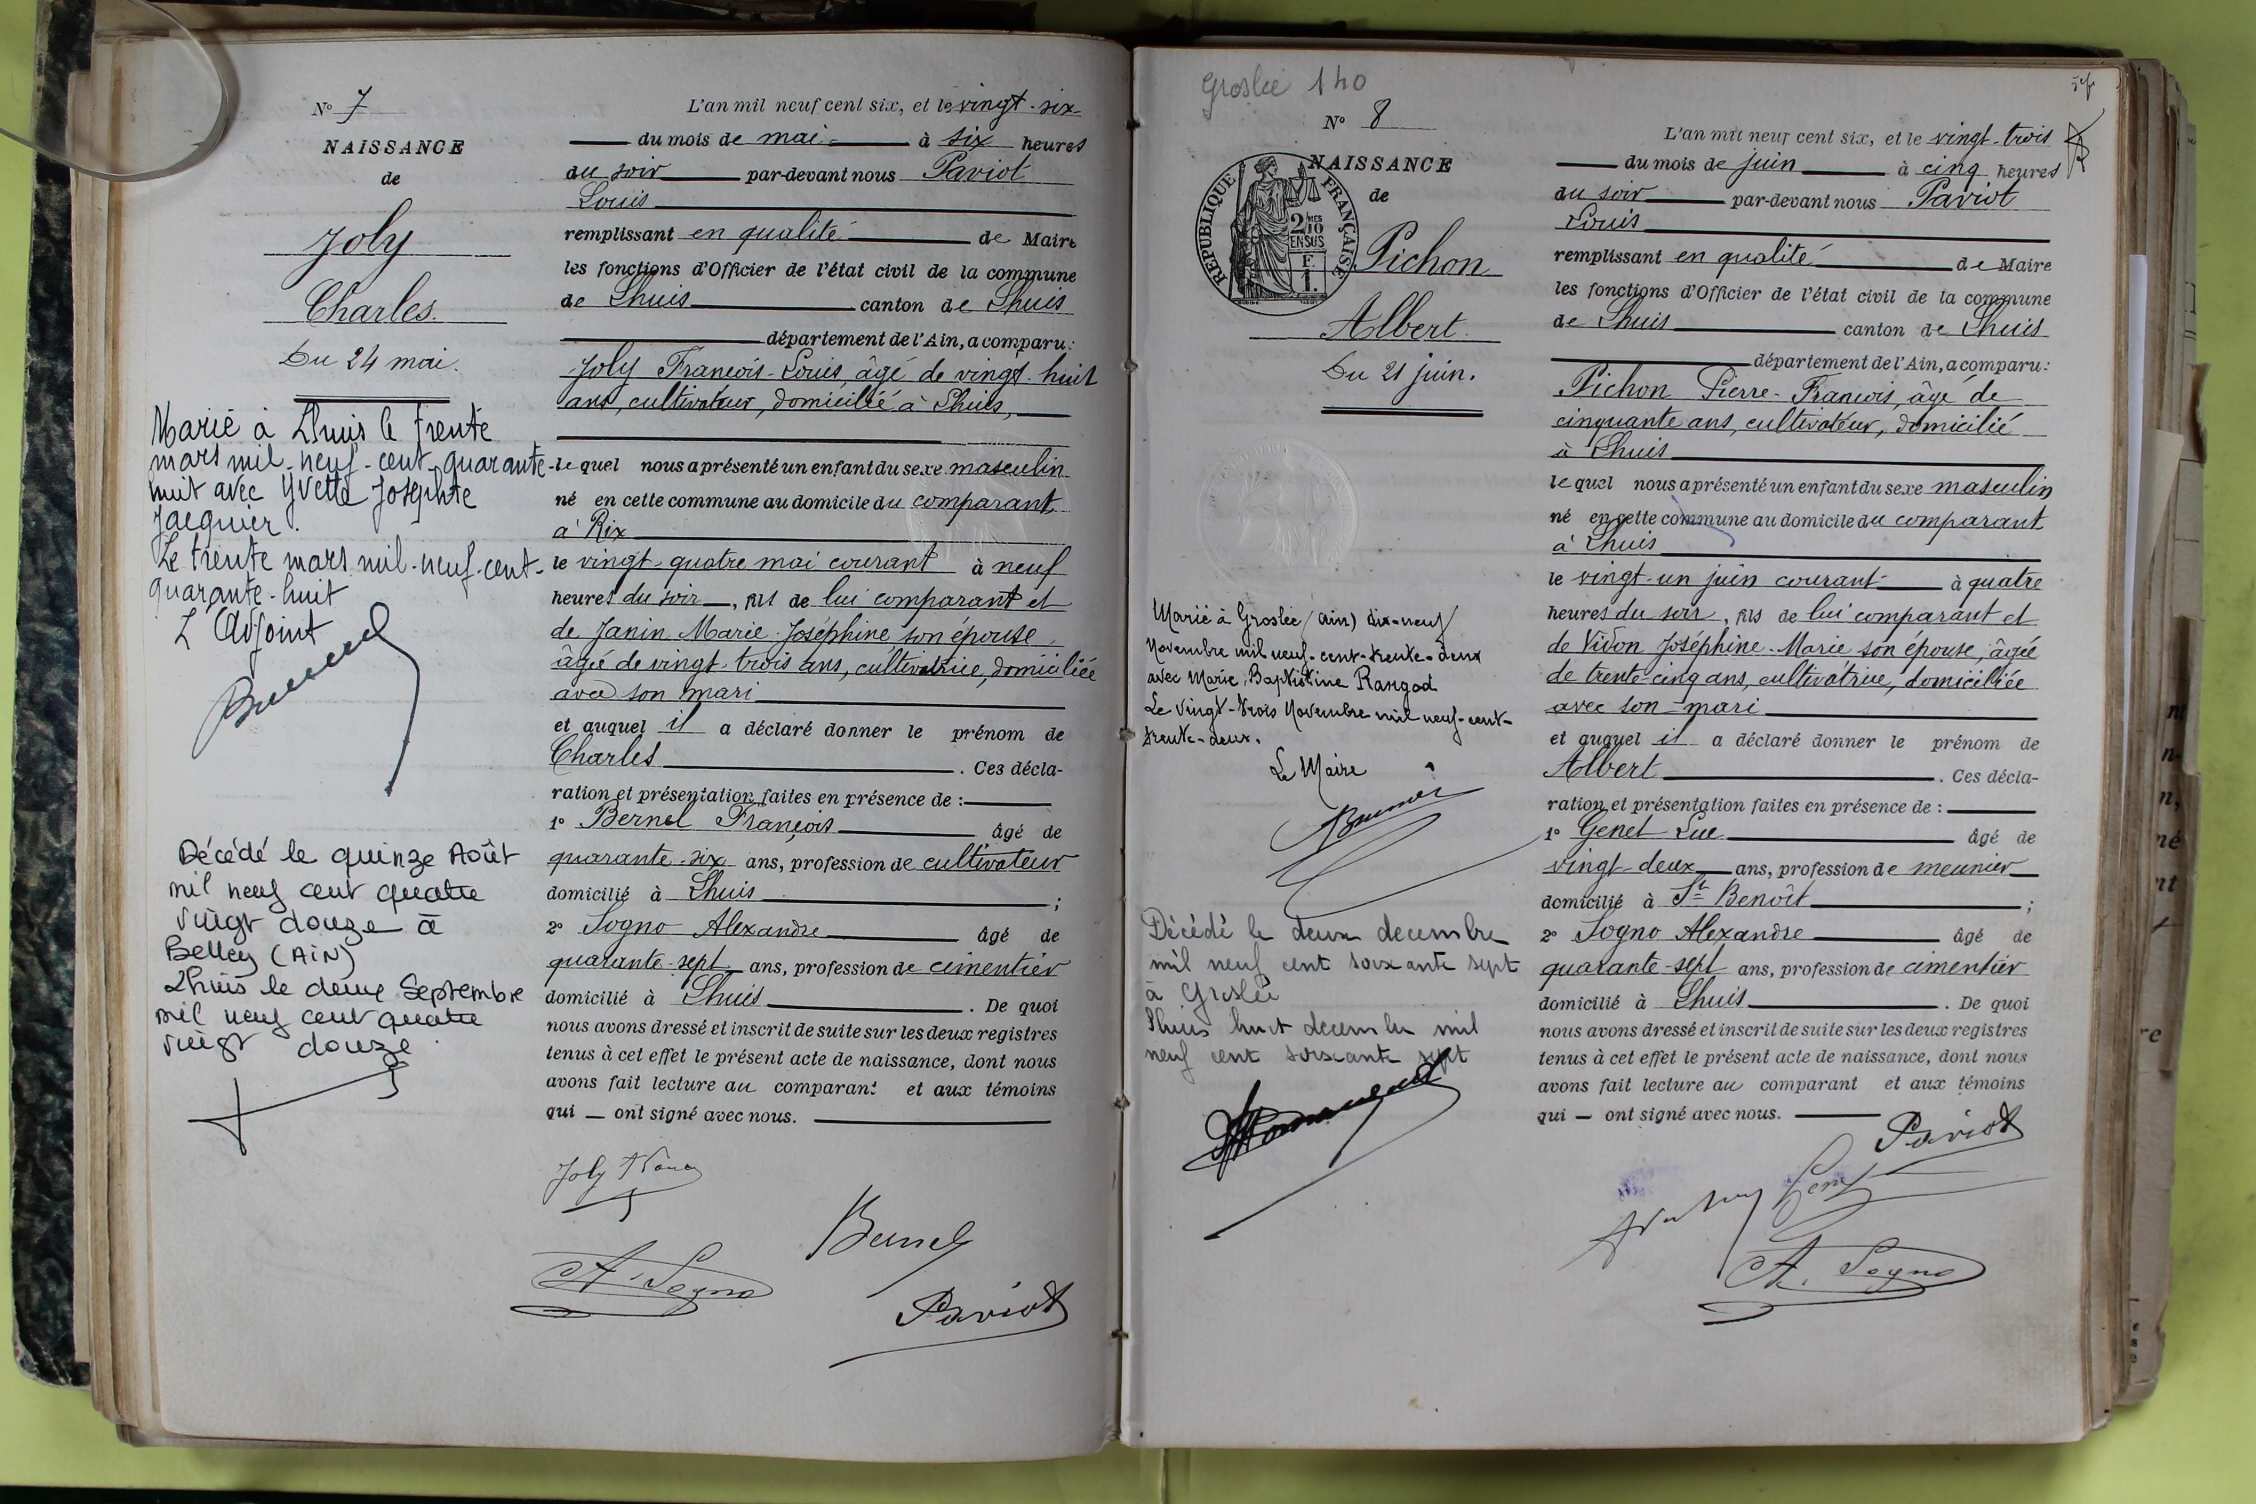 N° 7
NAISSANCE
de
Joly
Charles.
Du 24 mai.
Marié à Lhuis le trente
mars mil-neuf-cent-quarante-
huit avec Yvette Josephte
Jacquier.
Le trente mars mil-neuf-cent-
quarante-huit
L'Adjoint
Décédé le quinze Août
mil neuf cent quatre
vingt douze à
Belley (AiN)
Lhuis le deux Septembre
mil neuf cent quatre
vingt douze.
L'an mil neuf cent six, et le vingt-six
du mois de mai à six heures
du soir par-devant nous Paviot
Louis
remplissant en qualité de Maire
les fonctions d'Officier de l'état civil de la commune
de Lhuis canton de Lhuis
département de l'Ain, a comparu:
Joly François-Louis, âgé de vingt-huit
ans, cultivateur, domicilié à Lhuis,
lequel nous a présenté un enfant du sexe masculin
né en cette commune au domicile du comparant
à Rix
le vingt-quatre mai courant à neuf
heures du soir, fils de lui comparant et
de Janin Marie-Joséphine son épouse
âgée de vingt-trois ans, cultivatrice, domiciliée
avec son mari
et auquel il a déclaré donner le prénom de
Charles. Ces décla-
ration et présentation faites en présence de :
1° Bernel François âgé de
quarante-six ans, profession de cultivateur
domicilié à Lhuis ;
2° Sogno Alexandre âgé de
quarante-sept ans, profession de cimentier
domicilié à Lhuis. De quoi
nous avons dressé et inscrit de suite sur les deux registres
tenus à cet effet le présent acte de naissance, dont nous
avons fait lecture au comparant et aux témoins
qui — ont signé avec nous.
Joly
Bernel
A. Sogno
Paviot
Groslée 140
N° 8
NAISSANCE
de
RÉPUBLIQUE FRANÇAISE
2/10 MES
EN SUS
F.
1.
Pichon
Albert.
Du 21 juin.
Marié à Groslée (Ain) dix-neuf
Novembre mil neuf-cent-trente-deux
avec Marie Baptistine Rangod
Le vingt-trois Novembre mil neuf-cent-
trente-deux.
Le Maire
Décédé le deux decembre
mil neuf cent soixante sept
à Groslée
Lhuis huit decembre mil
neuf cent soixante sept
L'an mil neuf cent six, et le vingt-trois
du mois de juin à cinq heures
du soir par-devant nous Paviot
Louis
remplissant en qualité de Maire
les fonctions d'Officier de l'état civil de la commune
de Lhuis canton de Lhuis
département de l'Ain, a comparu:
Pichon Pierre-François, âgé de
cinquante ans, cultivateur, domicilié
à Lhuis
lequel nous a présenté un enfant du sexe masculin
né en cette commune au domicile du comparant
à Lhuis
le vingt-un juin courant à quatre
heures du soir, fils de lui comparant et
de Vidon Joséphine-Marie son épouse, âgée
de trente-cinq ans, cultivatrice, domiciliée
avec son mari
et auquel il a déclaré donner le prénom de
Albert. Ces décla-
ration et présentation faites en présence de :
1° Genet Luc âgé de
vingt-deux ans, profession de meunier
domicilié à St Benoît ;
2° Sogno Alexandre âgé de
quarante-sept ans, profession de cimentier
domicilié à Lhuis. De quoi
nous avons dressé et inscrit de suite sur les deux registres
tenus à cet effet le présent acte de naissance, dont nous
avons fait lecture au comparant et aux témoins
qui — ont signé avec nous.
Paviot
Genet
A. Sogno